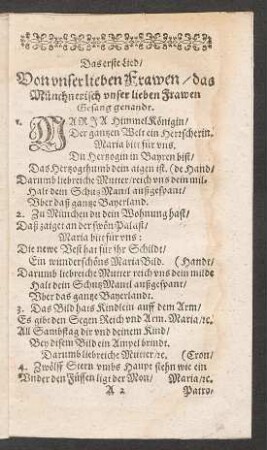 Das erste Lied/
Von vnser lieben Frawen/ das
Münchnerisch vnser lieben Frawen
Gesang genandt.
1. MARJA Himmel Königin/
Der gantzen Welt ein Herrscherin.
Maria bitt für vns.
Du Hertzogin in Bayren bist/
Das Hertzogthumb dein aigen ist. (de Hand/
Darumb liebreiche Mutter/ reich vns dein mil-
Halt dein Schutz Mantl außgespant/
Vber daß gantze Bayerland.
2. Zu München du dein Wohnung hast/
Daß zaiget an der schön Palast/
Maria bitt für vns:
Die newe Vest hat für jhr Schildt/
Ein wunderschöns Maria Bild. (Handt/
Darumb liebreiche Mutter reich vns dein milde
Halt dein Schutz Mantl außgespant/
Vber das gantze Bayerlandt.
3. Das Bild hats Kindlein auff dem Arm/
Es gibt den Segen Reich vnd Arm. Maria/ ꝛc.
All Sambstag dir vnd deinem Kind/
Bey disem Bild ein Ampel brindt.
Darumb liebreiche Mutter/ ꝛc. (Cron/
4. Zwölff Stern vmbs Haupt stehn wie ein
Vnder den Füssen ligt der Mon/ Maria/ ꝛc.
A 2 Patro-